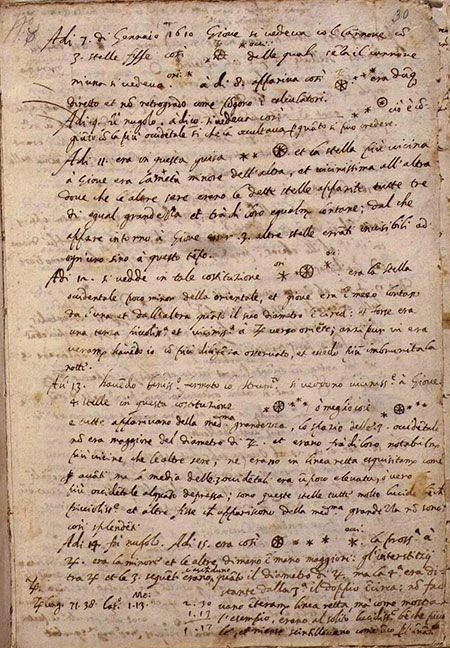 30
Adi 7. di Gennaio 1610 Giove si vedeva col Cannone co
3. stelle fisse così delle quali senza il cannone
niuna si vedeva à dì 8. appariva così era dūq
diretto et nō retrogrado come pogono i calculatori.
Adi 9. fù nugolo. à dì 10. si vedeva così cioè cō
giūto cō la più occidentale sì che la occultava quāto si può credere.
Adi 11. era in questa guisa et la stella più vicina
à Giove era la metà minore dell'altra, et vicinissima all'altra
dove che le altre sere erano le dette stelle apparite tutte tre
di egual grandezza et trà di loro equalm. lontane; dal che
appare intorno à Giove esser 3. altre stelle errāti invisibili ad
ogn'uno sino à questo tēpo.
Adi 12. si vedde in tale costituzione era la stella
occidentale poco minor della orientale, et giove era ī mezo lontano
da l'una et da l'altra quāto il suo diametro ī circa: et forse era
una terza piccoliss. et vicinissa à ♃ verso oriēte; anzi pur vi era
veramēte havēdo io cō più diligēza osservato, et essēdo più imbrunita la
notte.
Adi 13. havēdo beniss. fermato lo strum. si veddono viciniss. à Giove
4. stelle in questa costituzione ò meglio così
e tutte apparivano della med.ma grandezza, lo spazio delle 3. occidētali
nō era maggiore del diametro di ♃. et erano frà di loro notabilmē.
più vicine che le altre sere; ne erano in linea retta esquisitamē. come
p avāti ma la media delle 3 occidētali era ū poco elevata, ò vero
la più occidētale alquāto depressa; sono queste stelle tutte molto lucide bēche
piccoliss. et altre fisse ch appariscono della med.ma grandezza nō sono
così splendēti.
Adi 14. fù nugolo. Adi 15. era così la pross. à
♃. era la minore et le altre di mano ī mano maggiori: gl'interstizij
trà ♃ et le 3. seguēti erano quāto il diametro di ♃. ma la 4. era di-
stante dalla 3. il doppio ī circa; nō fa
cevano īteramē. linea retta ma come mostra
l'esempio, erano al solito lucidiss. bēche picc
♃. long. 71.38 lat. 1.13.